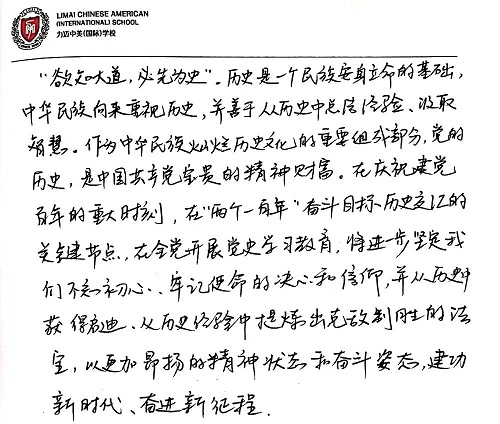 LIMAI CHINESE AMERICAN
(INTERNATIONAL) SCHOOL
力迈中美(国际)学校
“欲知大道,必先为史”。历史是一个民族安身立命的基础,
中华民族向来重视历史,并善于从历史中总结经验、汲取
智慧。作为中华民族灿烂历史文化的重要组成部分,党的
历史,是中国共产党宝贵的精神财富。在庆祝建党
百年的重大时刻,在“两个一百年”奋斗目标历史交汇的
关键节点,在全党开展党史学习教育,将进一步坚定我
们不忘初心、牢记使命的决心和信仰,并从历史中
获得启迪、从历史经验中提炼出克敌制胜的法
宝,以更加昂扬的精神状态和奋斗姿态,建功
新时代、奋进新征程.